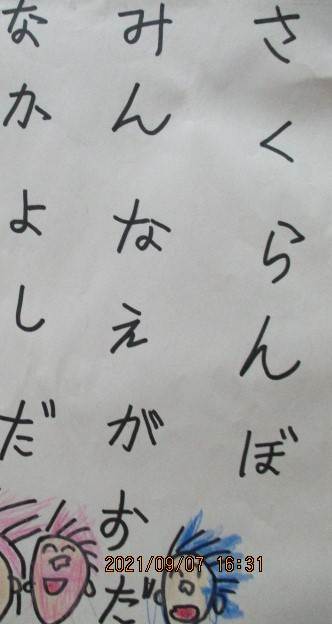 さくらんぼ
みんなえがおだ
なかよしだ
2021/09/07 16:31